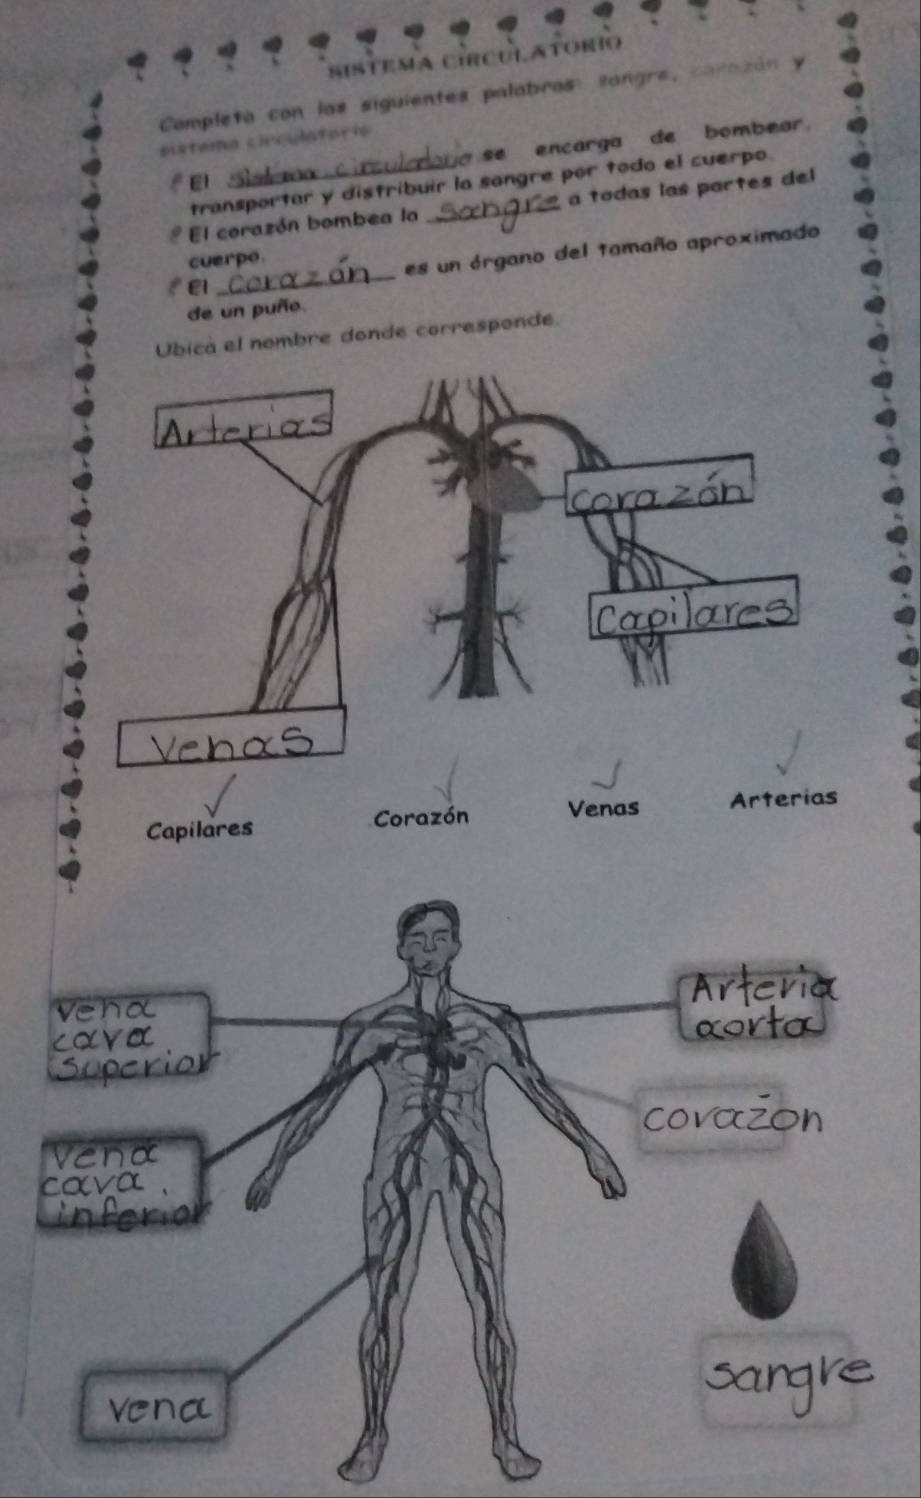 SISTEMA CIRCULATORIO
Completa con las siguientes palabras: sangre, corazón y
sistema circulatorio
El Sistema circulatorio se encarga de bombear,
transportar y distribuir la sangre por todo el cuerpo.
El corazón bombea la sangre a todas las partes del
cuerpo.
El corazón es un órgano del tamaño aproximado
de un puño.
Ubica el nombre donde corresponde.
Arterias
corazón
Capilares
Venas
Capilares Corazón Venas Arterias
vena
cava
superior
Arteria
aorta
corazon
vena
cava
inferior
vena
sangre